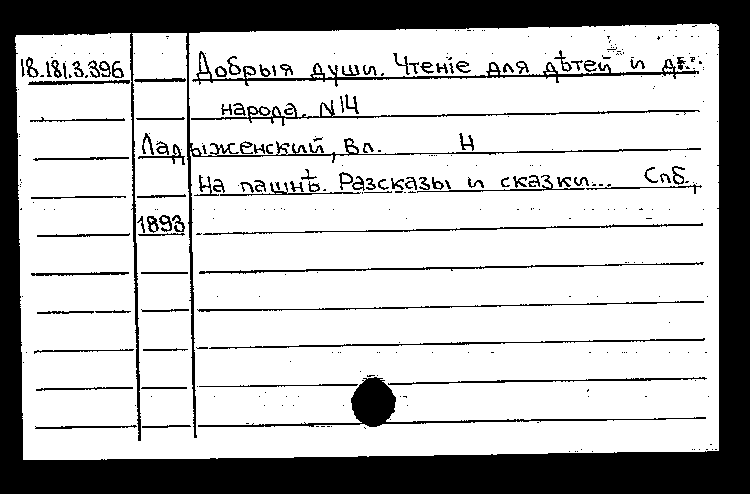 18.181.3.396 Добрыя души. Чтенiе для дѣтей и для
народа. N14
Ладыженский, Вл. Н
На пашнѣ. Разсказы и сказки... Спб.,
1893